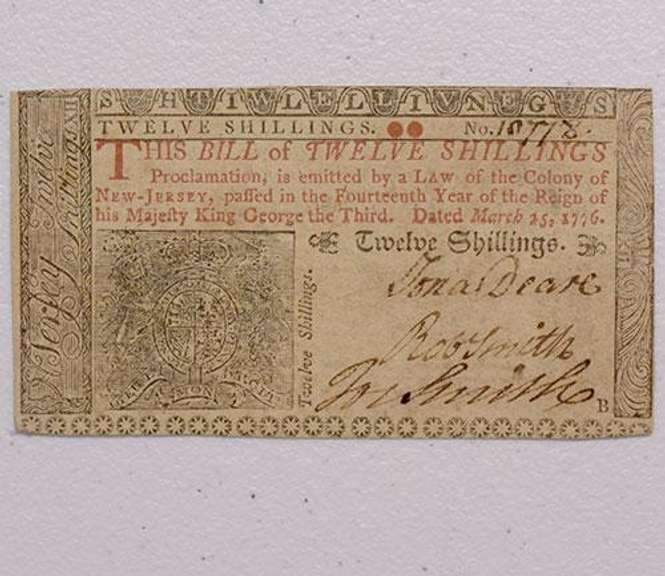 SHTIWLELLIVNEGS
TWELVE SHILLINGS. No. 18772.
THIS BILL of TWELVE SHILLINGS
Proclamation, is emitted by a LAW of the Colony of
NEW-JERSEY, paſſed in the Fourteenth Year of the Reign of
his Majeſty King George the Third. Dated March 25, 1776.
Twelve Shillings.
Jona. Deare
Robt Smith
Jos Smith
B
Twelve Shillings.
N. Jerſey Twelve Shillings